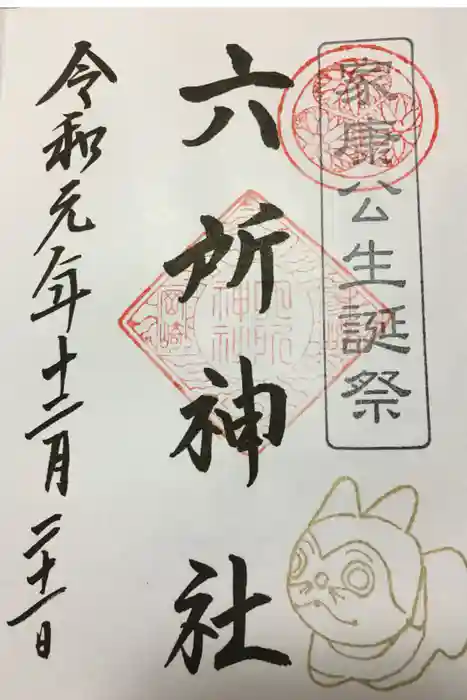 家康公生誕祭
六所神社
岡崎
六所神社
令和元年十二月二十一日